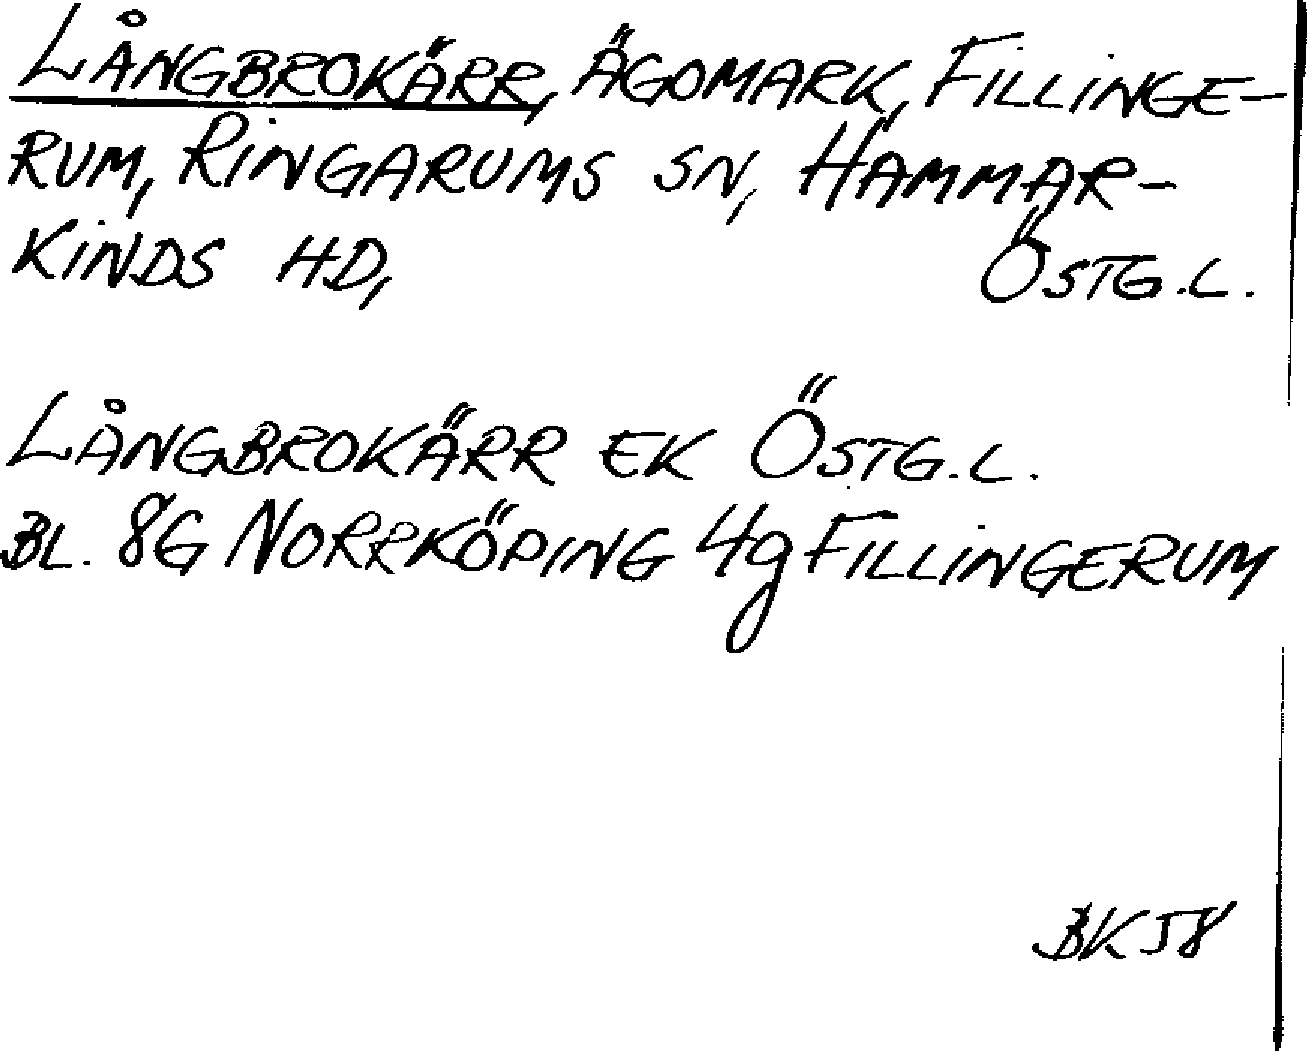 LÅNGBROKÄRR, ÄGOMARK, FILLINGE-
RUM, RINGARUMS SN, HAMMAR-
KINDS HD, ÖSTG.L.
LÅNGBROKÄRR EK ÖSTG.L.
BL. 8G NORRKÖPING 4g FILLINGERUM
BK 58